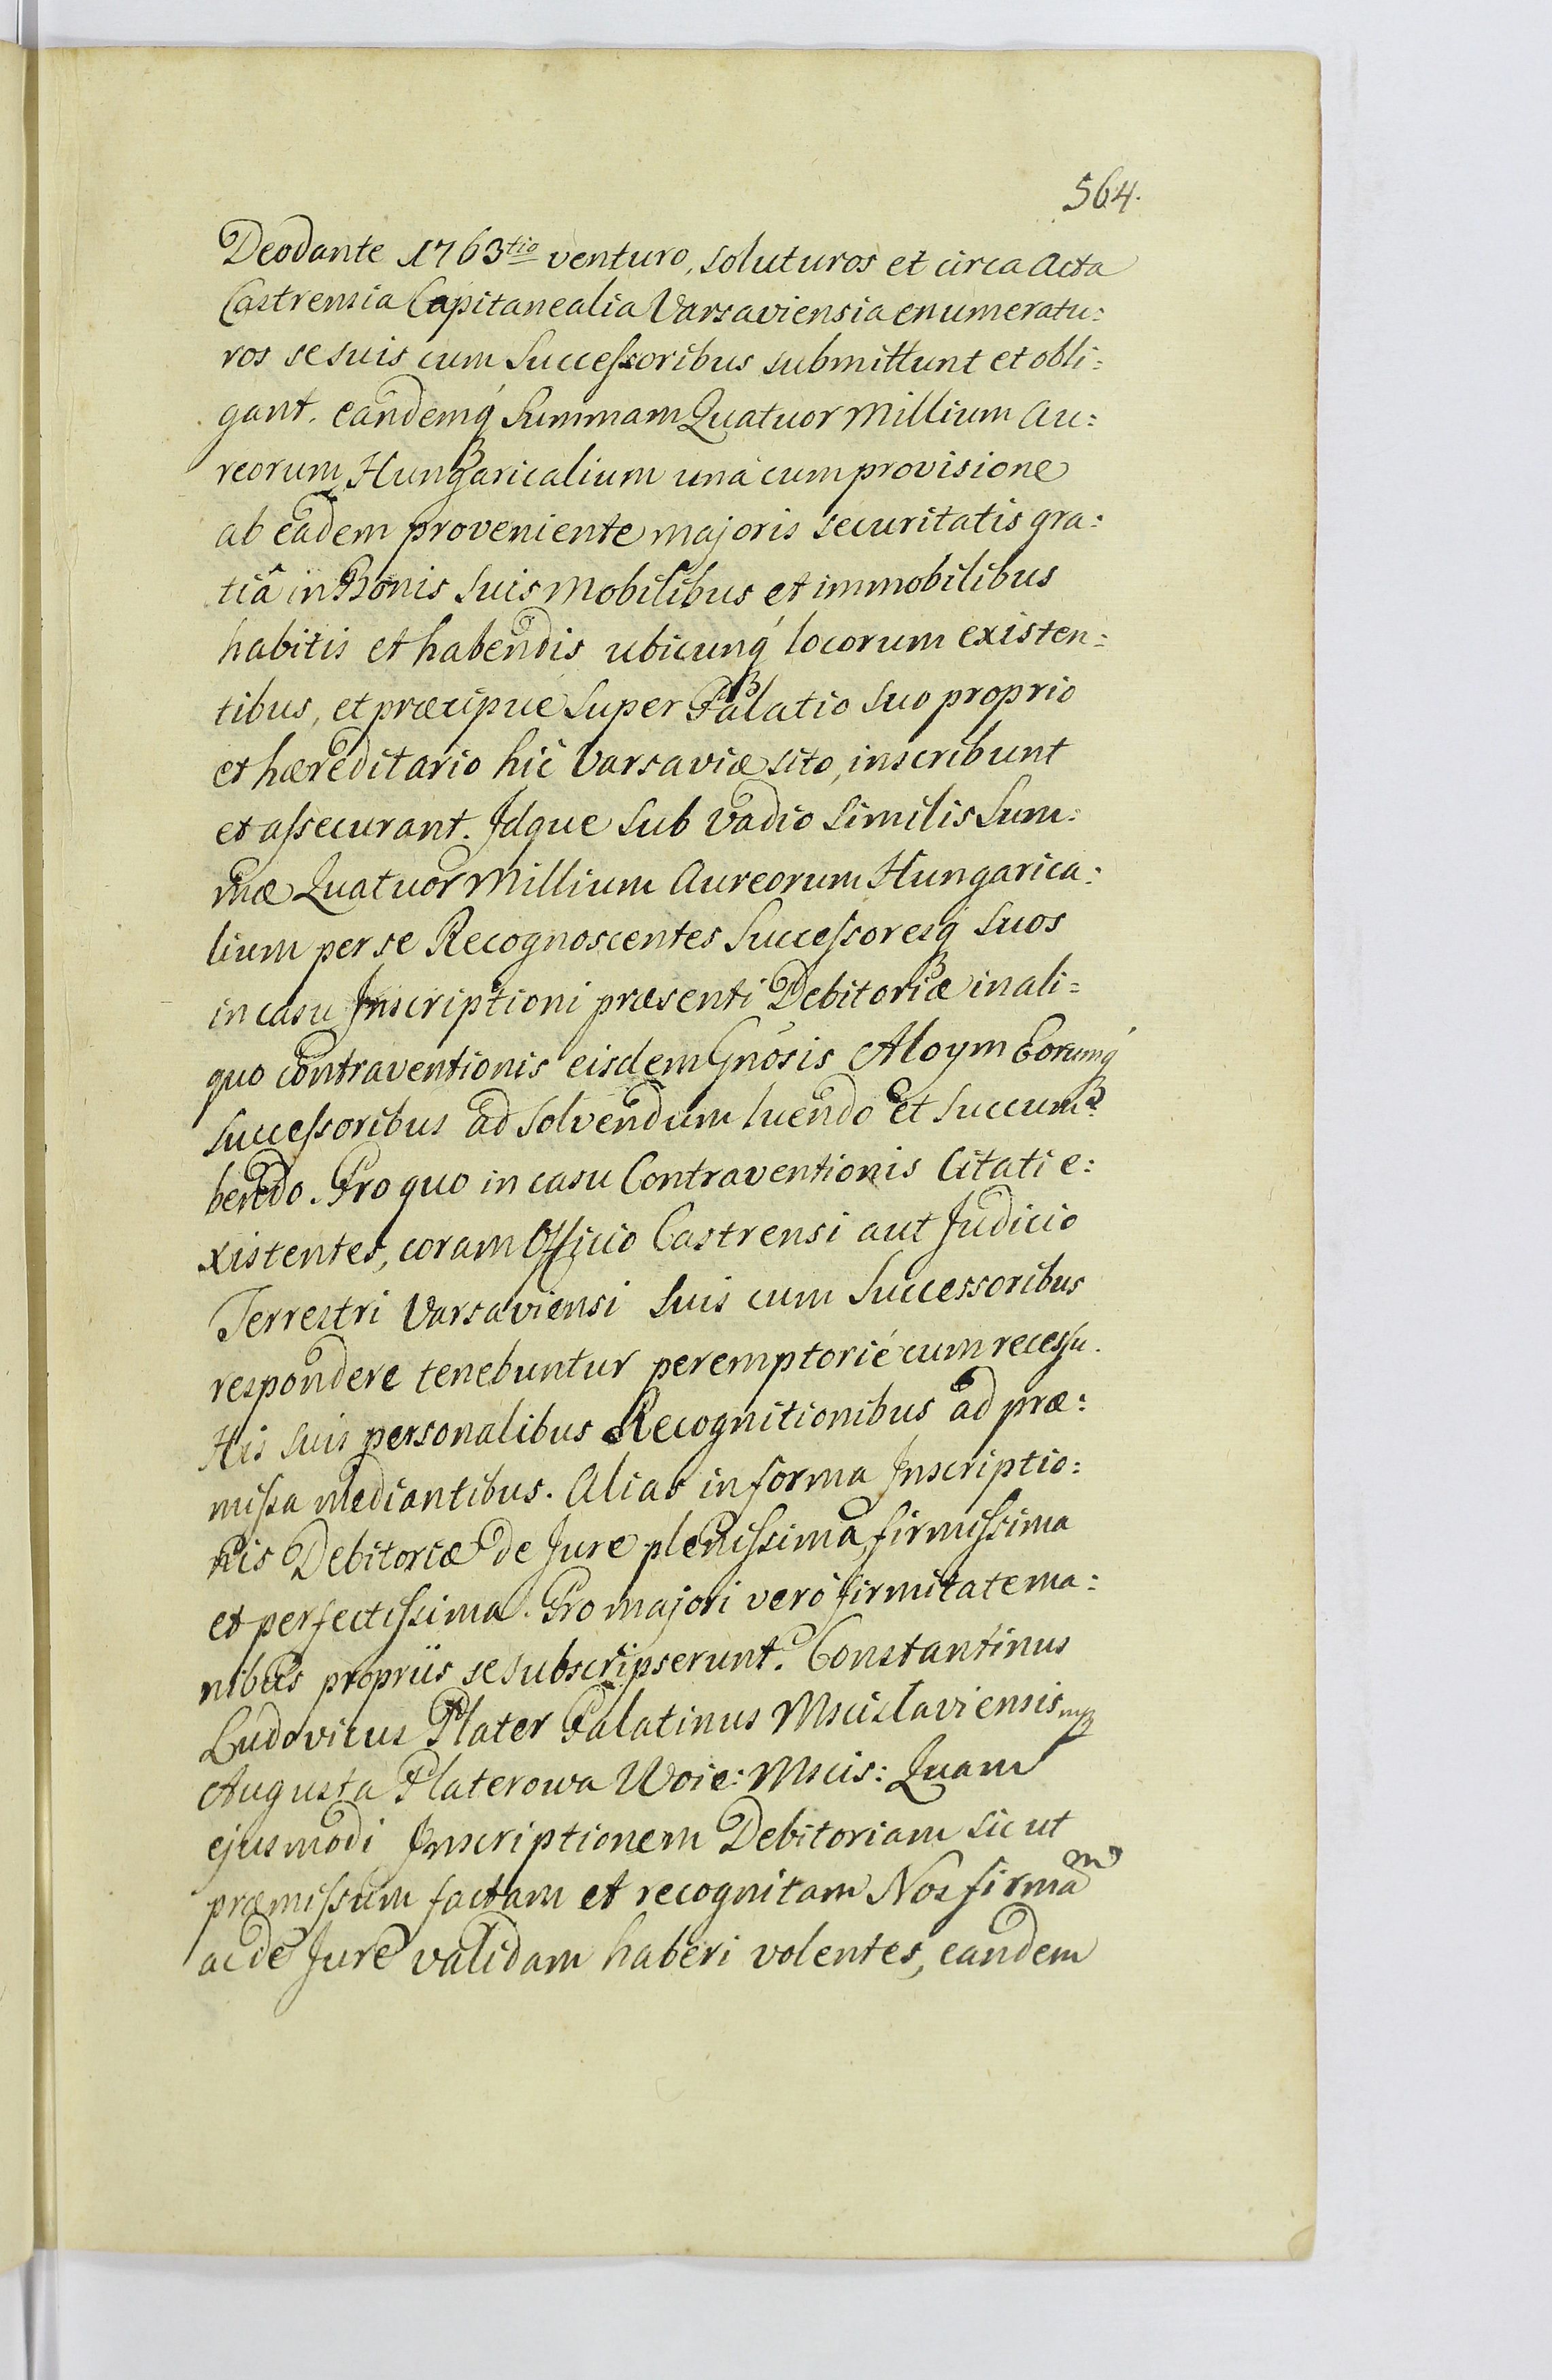 564.
Deodante 1763tio venturo, soluturos et circa Acta
Castrensia Capitanealia Varsaviensia enumeratu:
ros se suis cum Successoribus submittunt et obli:
gant. eandemq́ Summam Quatuor Millium Au:
reorum Hungaricalium unà cum provisione
ab eadem proveniente majoris securitatis gra:
tiâ in Bonis suis Mobilibus et immobilibus
habitis et habendis ubicunq́ locorum existen:
tibus, et præcipuè super Palatio suo proprio
et hæreditario hic Varsaviæ sito, inscribunt
et assecurant. Idque sub vadio similis Sum:
mæ Quatuor Millium Aureorum Hungarica:
lium per se Recognoscentes Successoresq́ suos
in casu Inscriptioni præsenti Debitoriæ in ali:
quo contraventionis eisdem Gnosis Aloym Eorumq́
successoribus ad solvendum luendo et succum:
bendo. Pro quo in casu Contraventionis Citati e:
xistentes, coram Officio Castrensi aut Judicio
Terrestri Varsaviensi suis cum Successoribus
respondere tenebuntur peremptoriè cum recessu.
His suis personalibus Recognitionibus ad præ:
missa mediantibus. Alias in forma Inscriptio:
nis Debitoriæ de Jure plenissima, firmissima
et perfectissima. Pro majori verò firmitate ma:
nibus propriis se subscripserunt. Constantinus
Ludovicus Plater Palatinus Mscislaviensis mp
Augusta Platerowa Woie: Mscis: Quam
ejusmodi Inscriptionem Debitoriam sicut
præmissum factam et recognitam Nos firmam
ac de Jure validam haberi volentes, eandem